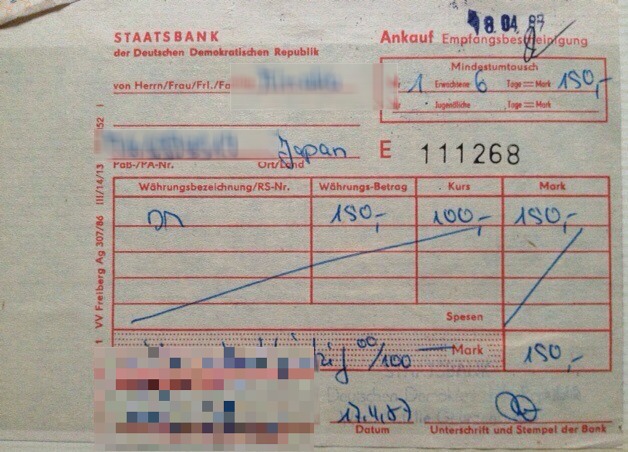 18.04.87
STAATSBANK
der Deutschen Demokratischen Republik
Ankauf Empfangsbescheinigung
Mindestumtausch
von Herrn/Frau/Frl./Fa
1 Erwachsene 6 Tage = Mark 150,-
Jugendliche Tage = Mark
Japan
Paß-/PA-Nr. Ort/Land
E 111268
Währungsbezeichnung/RS-Nr. Währungs-Betrag Kurs Mark
DM 150,- 100,- 150,-
Spesen
zig 00/100 Mark 150,-
17.4.87
Datum Unterschrift und Stempel der Bank
1 VV Freiberg Ag 307/86 III/14/13 152